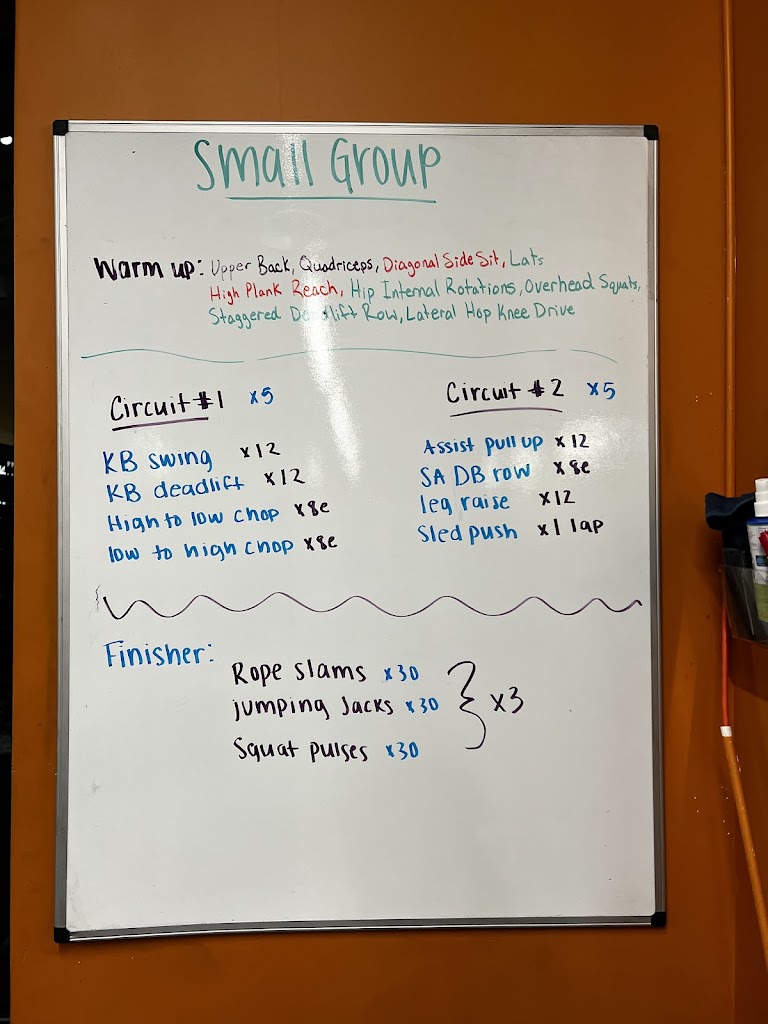 Small Group
Warm up: Upper Back, Quadriceps, Diagonal Side Sit, Lats
High Plank Reach, Hip Internal Rotations, Overhead Squats,
Staggered Deadlift Row, Lateral Hop Knee Drive
Circuit #1 x5
KB swing x12
KB deadlift x12
High to low chop x8e
low to high chop x8e
Circuit #2 x5
Assist pull up x12
SA DB row x8e
leg raise x12
Sled push x1 lap
Finisher:
Rope slams x30
jumping Jacks x30
Squat pulses x30
} x3